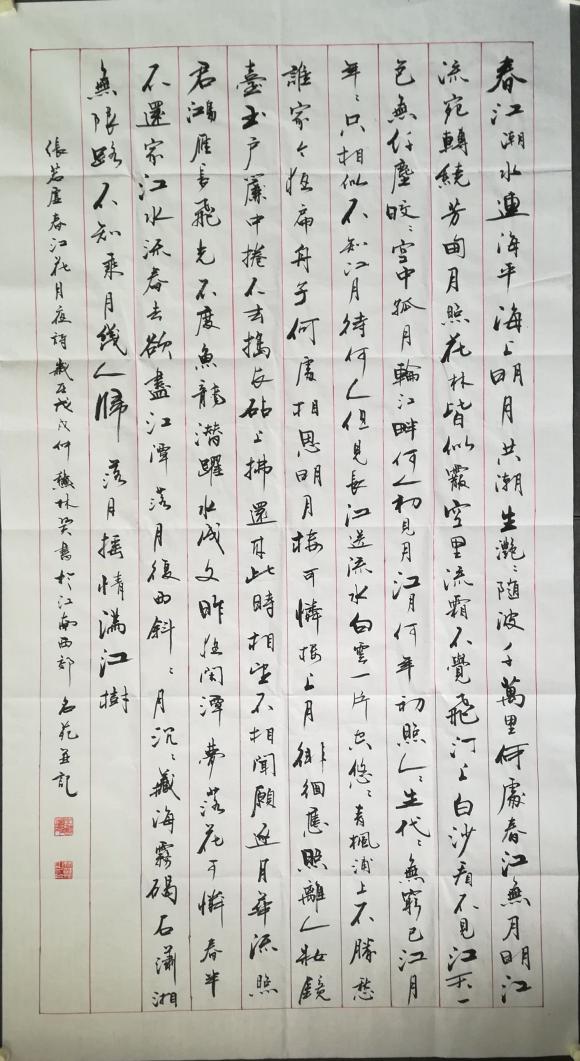 春江潮水連海平海上明月共潮生灧〻随波千萬里何處春江無月明江
流宛轉繞芳甸月照花林皆似霰空里流霜不覺飛汀上白沙看不見江天一
色無纤塵皎〻空中孤月輪江畔何人初見月江月何年初照人〻生代〻無窮已江月
年〻只相似不知江月待何人但見長江送流水白雲一片去悠〻青楓浦上不勝愁
誰家今夜扁舟子何處相思明月樓可憐樓上月徘徊應照離人妝鏡
臺玉户簾中捲不去搗衣砧上拂還来此時相望不相聞願逐月華流照
君鴻雁長飛光不度魚龍潜躍水成文昨夜闲潭夢落花可憐春半
不還家江水流春去欲盡江潭落月復西斜〻月沉〻藏海霧碣石瀟湘
無限路不知乘月幾人歸落月摇情满江樹
張若虛春江花月夜詩歲在戊戌仲林笑書於江南西郊并記